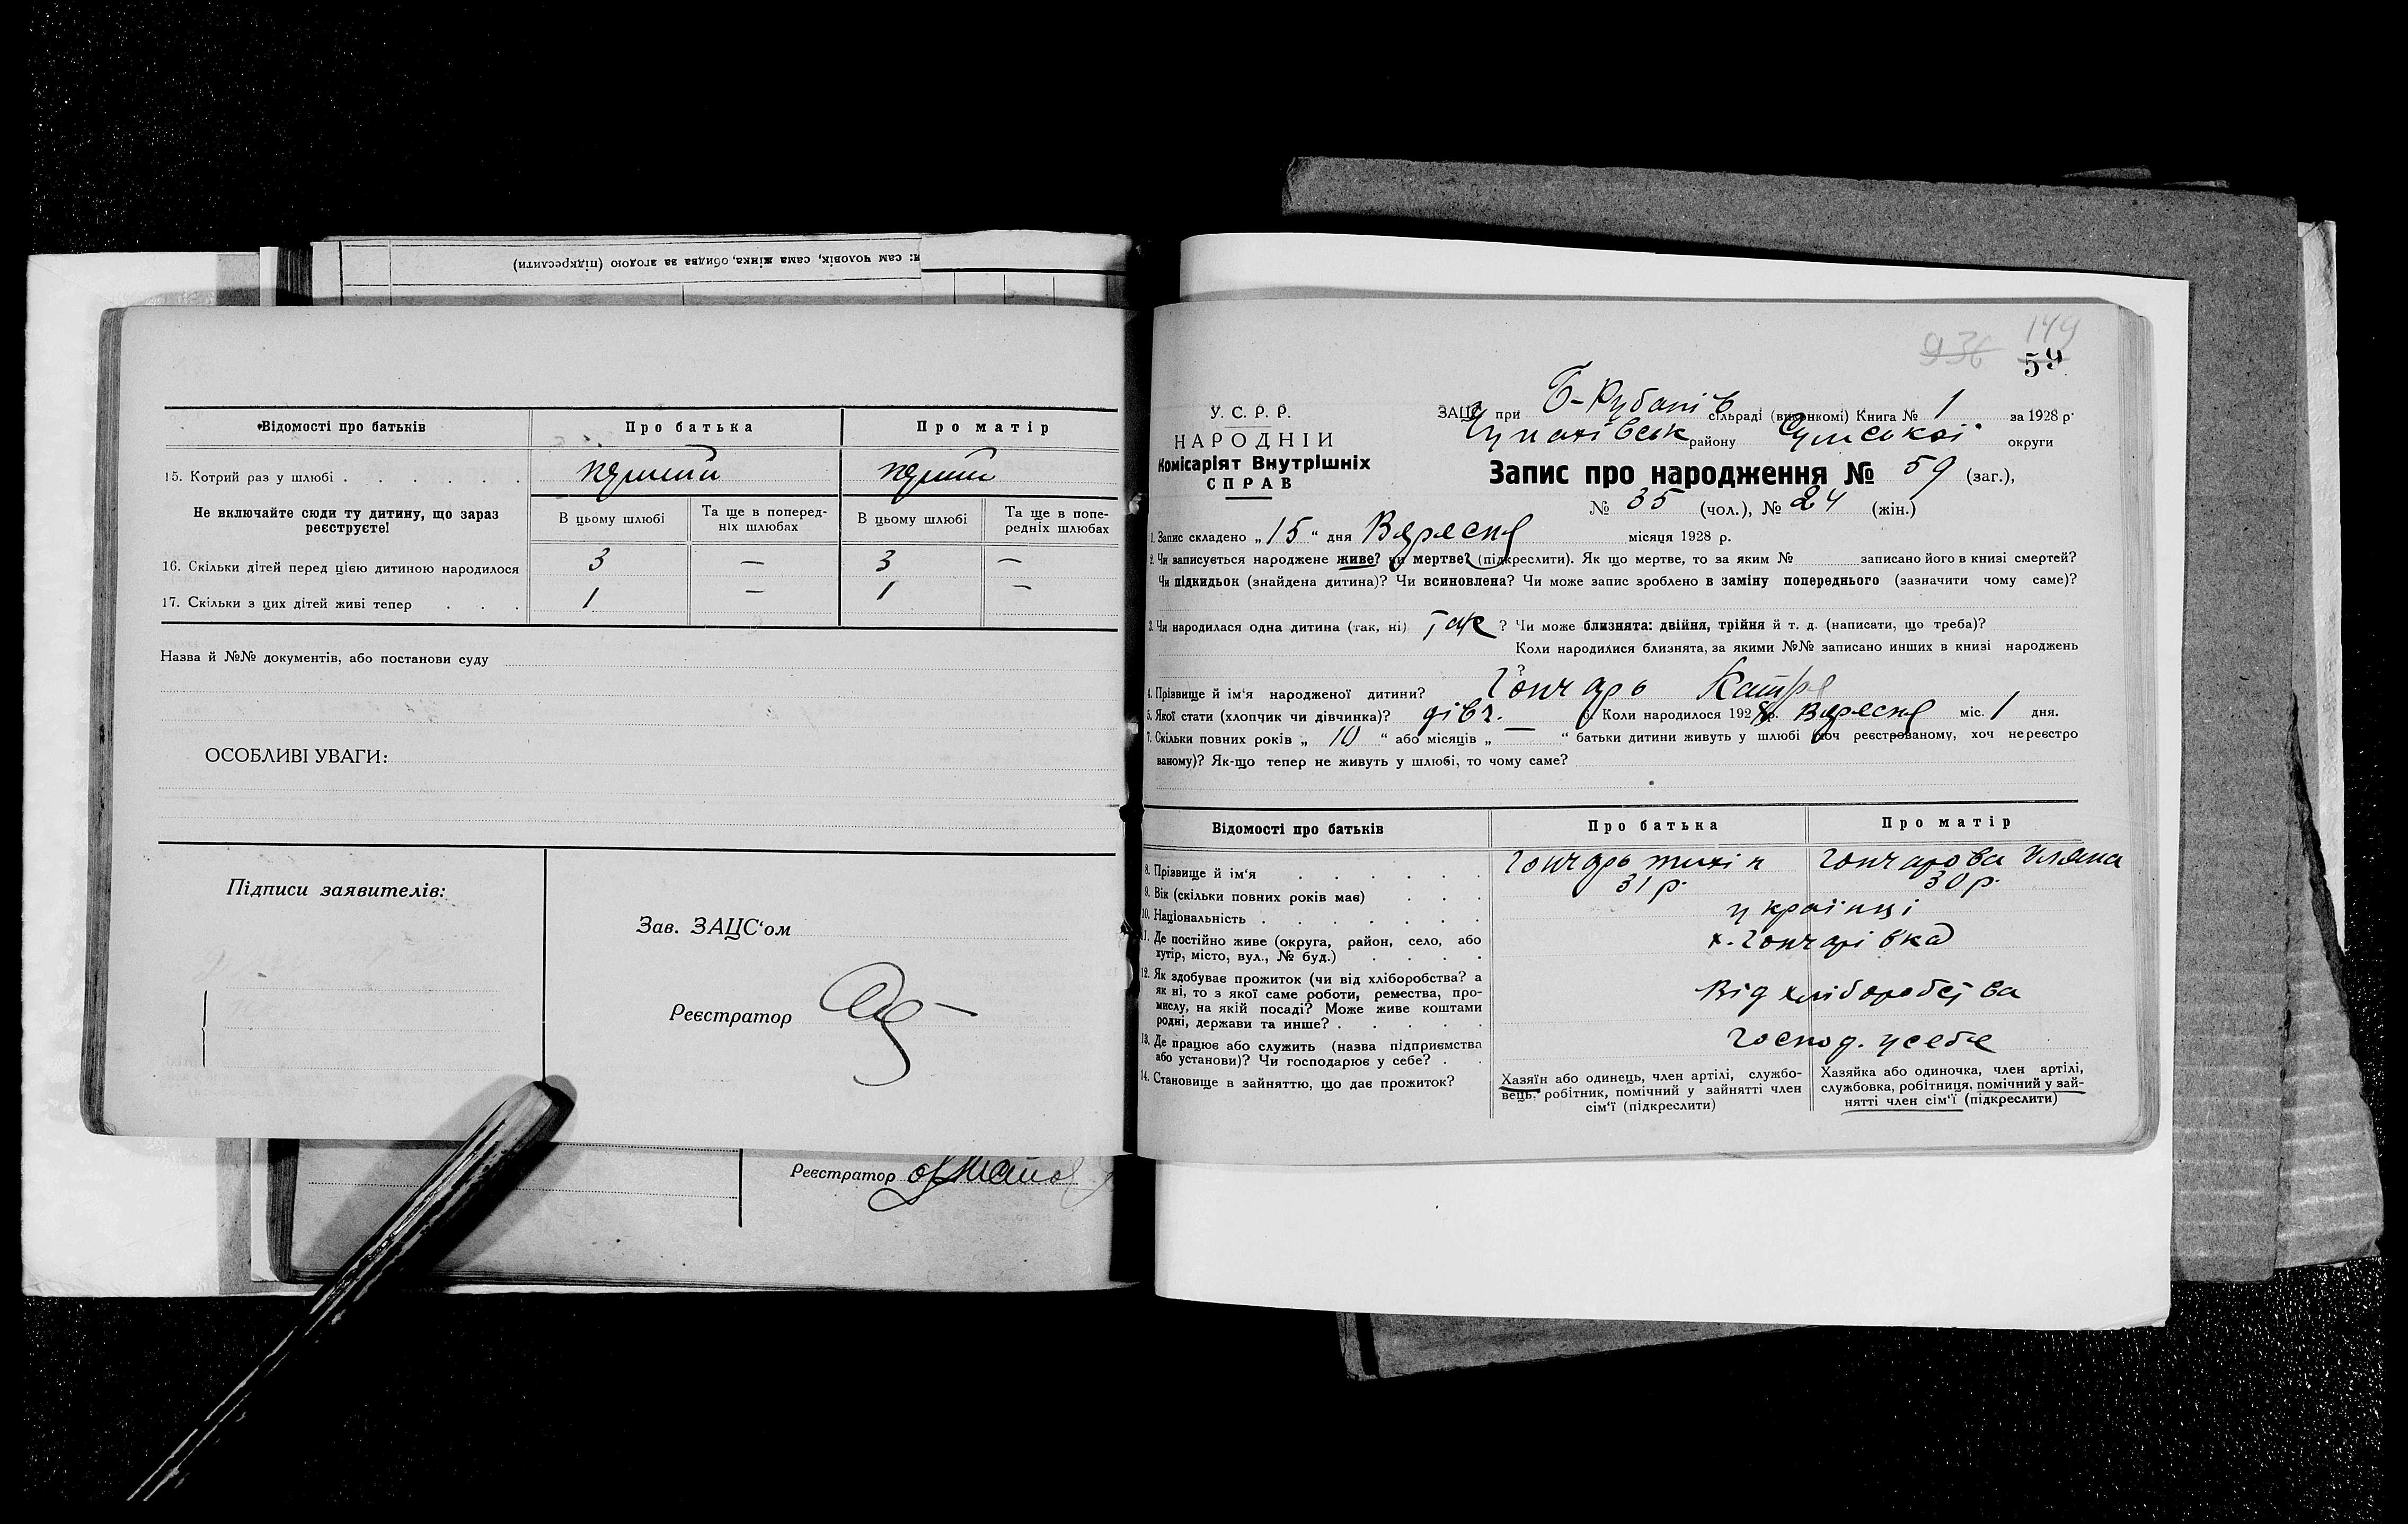 и: сам чоловік, сама жінка, обидва за згодою (підкреслити)
Відомості про батьків
Про батька
Про матір
15. Котрий раз у шлюбі . . . . . .
перший
перший
Не включайте сюди ту дитину, що зараз реєструєте!
В цьому шлюбі
Та ще в поперед-
ніх шлюбах
В цьому шлюбі
Та ще в попе-
редніх шлюбах
16. Скільки дітей перед цією дитиною народилося
3 — 3 —
17. Скільки з цих дітей живі тепер . . .
1 — 1 —
Назва й №№ документів, або постанови суду
ОСОБЛИВІ УВАГИ:
Підписи заявителів:
Зав. ЗАЦС‘ом
Реєстратор
Реєстратор
936 149
59
У. С. Р. Р.
НАРОДНІЙ
Комісаріят Внутрішніх
СПРАВ
ЗАЦС при Б-Рубанів сільраді (виконкомі) Книга № 1 за 1928 р.
Чупахівськ району Сумської округи
Запис про народження № 59 (заг.),
№ 35 (чол.), № 24 (жін.)
1. Запис складено „15“ дня Вересня місяця 1928 р.
2. Чи записується народжене живе? чи мертве? (підкреслити). Як що мертве, то за яким № записано його в книзі смертей?
Чи підкидьок (знайдена дитина)? Чи всиновлена? Чи може запис зроблено в заміну попереднього (зазначити чому саме)?
3. Чи народилася одна дитина (так, ні) так ? Чи може близнята: двійня, трійня й т. д. (написати, що треба)?
Коли народилися близнята, за якими №№ записано инших в книзі народжень
?
4. Прізвище й ім‘я народженої дитини? Гончарь Катря
5. Якої стати (хлопчик чи дівчинка)? дівч. 6. Коли народилося 1928 р. Вересня міс. 1 дня.
7. Скільки повних років „ 10 “ або місяців „ — “ батьки дитини живуть у шлюбі (хоч реєстрованому, хоч нереєстро
ваному)? Як-що тепер не живуть у шлюбі, то чому саме?
Відомості про батьків
Про батька
Про матір
8. Прізвище й ім‘я . . . . . .
Гончарь Тихін
Гончарова Уляна
9. Вік (скільки повних років має) . . .
31 р.
30 р.
10. Національність . . . . . . .
українці
11. Де постійно живе (округа, район, село, або
хутір, місто, вул., № буд.) . . . .
х. Гончарівка
12. Як здобуває прожиток (чи від хліборобства? а
як ні, то з якої саме роботи, ремества, про-
мислу, на якій посаді? Може живе коштами
родні, держави та инше? . . . . .
Від хліборобства
13. Де працює або служить (назва підприємства
або установи)? Чи господарює у себе? . .
господ. у себе
14. Становище в зайняттю, що дає прожиток?
Хазяїн або одинець, член артілі, службо-
вець, робітник, помічний у зайнятті член
сім‘ї (підкреслити)
Хазяйка або одиночка, член артілі,
службовка, робітниця, помічний у зай-
нятті член сім‘ї (підкреслити)